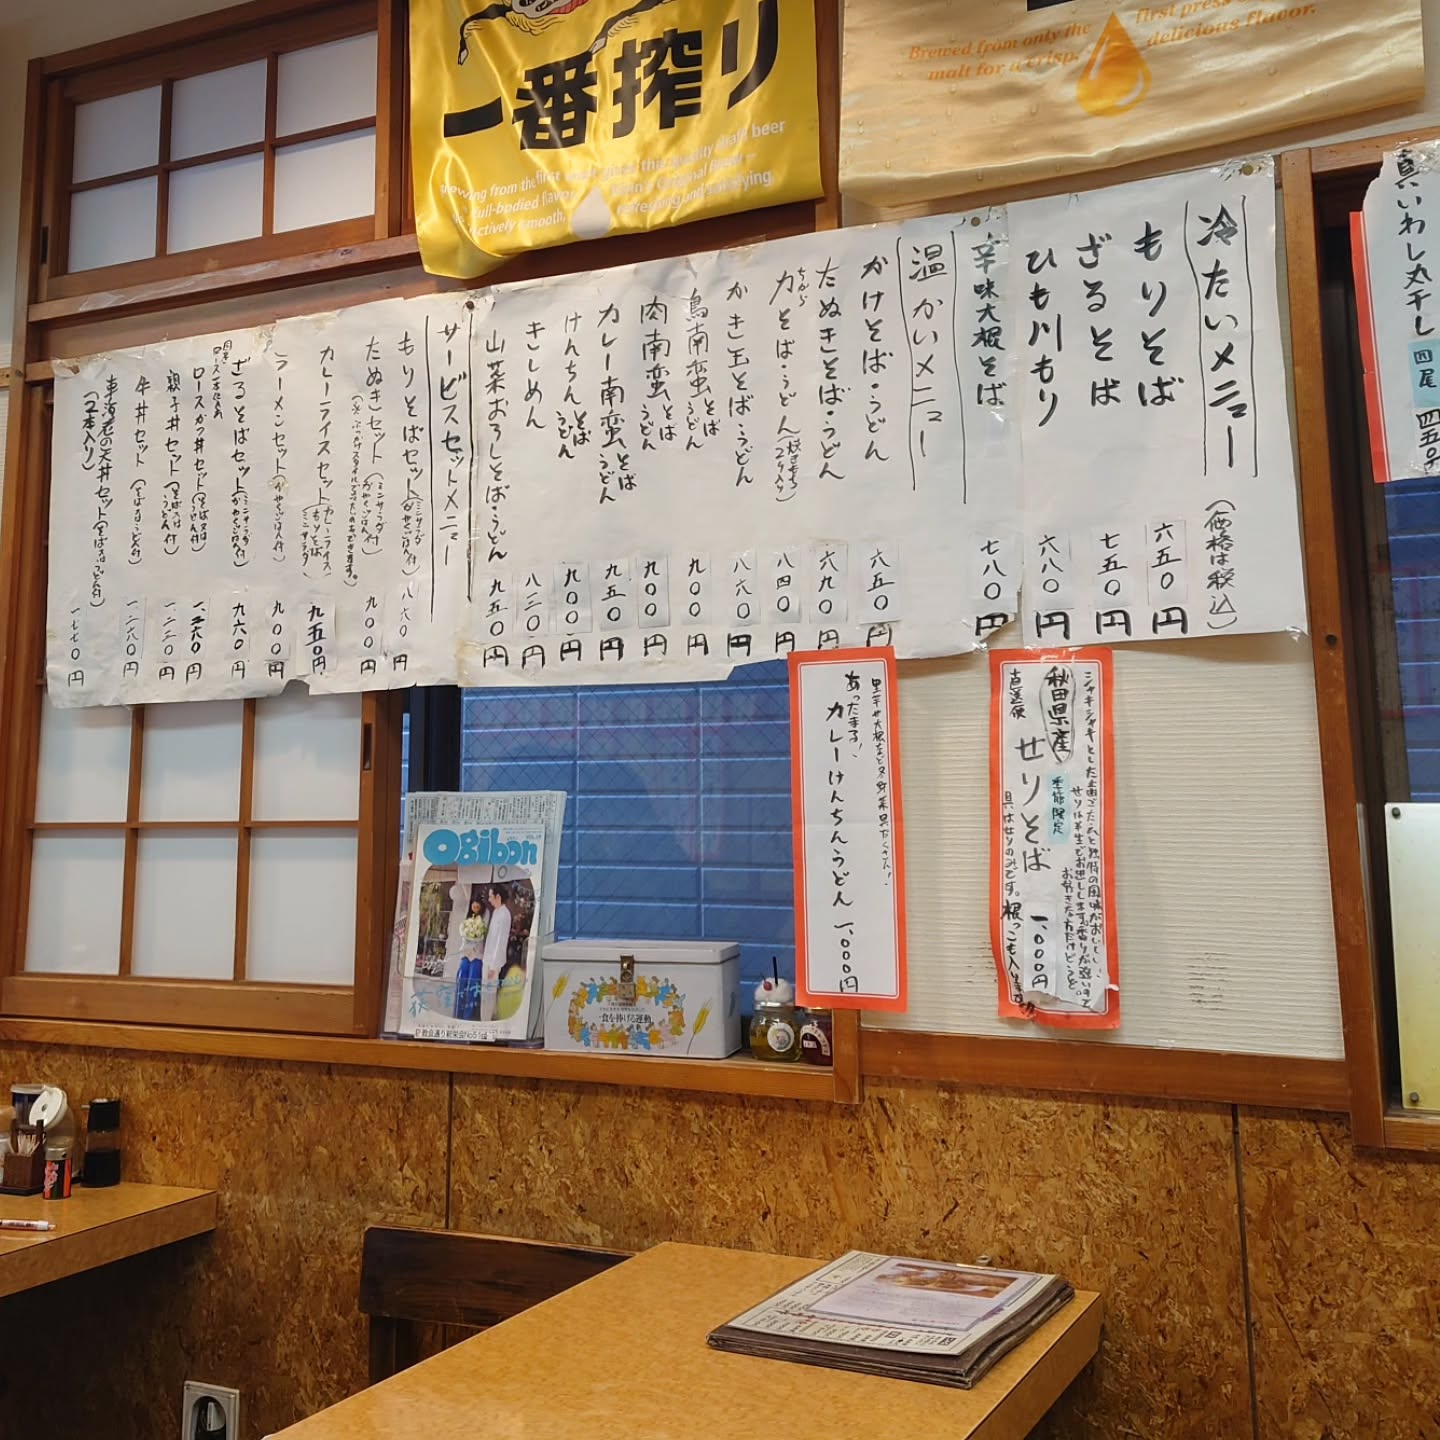 一番搾り
Brewed from only the first press
malt for a crisp, delicious flavor.
冷たいメニュー
(価格は税込)
もりそば 六五〇円
ざるそば 七五〇円
ひも川もり 六八〇円
辛味大根そば 七八〇円
温かいメニュー
かけそば・うどん 六五〇円
たぬきそば・うどん 六九〇円
力そば・うどん(焼きもち2ケ入り) 八四〇円
ちから
かき玉そば・うどん 八六〇円
鳥南蛮そばうどん 九〇〇円
肉南蛮そばうどん 九〇〇円
カレー南蛮そばうどん 九五〇円
けんちんそばうどん 九〇〇円
きしめん 八三〇円
山菜おろしそば・うどん 九五〇円
サービスセットメニュー
もりそばセット(ミニサラダかやくごはん付) 八六〇円
たぬきセット(ミニサラダかやくごはん付) 九〇〇円
カレーライスセット(カレーライスもりそばミニサラダ) 九五〇円
ラーメンセット(かやくごはん付) 九〇〇円
ざるそばセット(ミニサラダかやくごはん付) 九六〇円
ロースかつ丼セット(そば又はうどん付) 一、三六〇円
親子丼セット(そば又はうどん付) 一、二三〇円
牛丼セット(そば又はうどん付) 一、二八〇円
車海老の天丼セット(そば又はうどん付) 一、七七〇円
(2本入り)
真いわし丸干し 四尾 四五〇
里芋や大根など冬野菜具だくさん!
あったまる!
カレーけんちんうどん 一、〇〇〇円
シャキシャキとした歯ごたえと独特の風味がおいしい
せりは半生でお出しします。香りが強いので
お好きな方だけどうぞ
季節限定
秋田県産
せりそば 一、〇〇〇円
直送便
具はせりのみです。根っこも入ります
Ogibon
荻窪
教会通り新栄会
食を捧げる運動